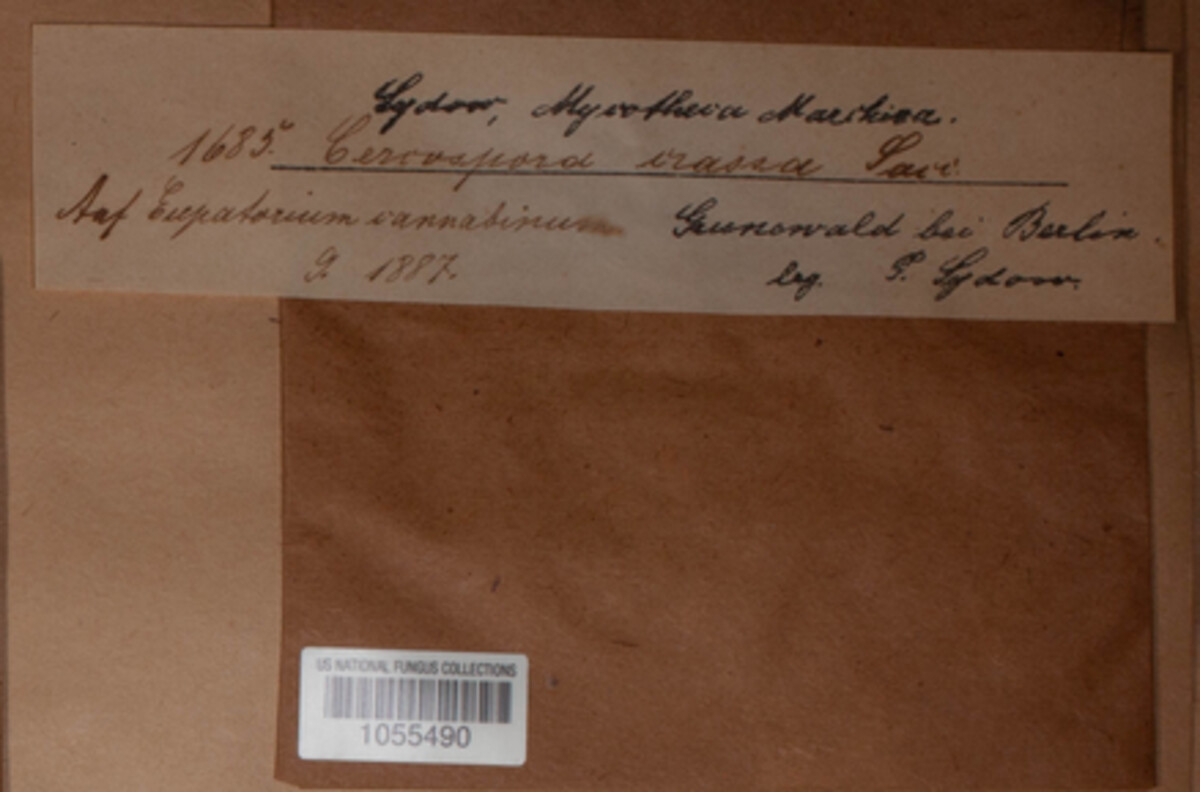 Sydow, Mycotheca Marchica.
1685. Cercospora crassa Sacc.
Auf Eupatorium cannabinum Grunewald bei Berlin.
9. 1887. leg. P. Sydow.
US NATIONAL FUNGUS COLLECTIONS
1055490